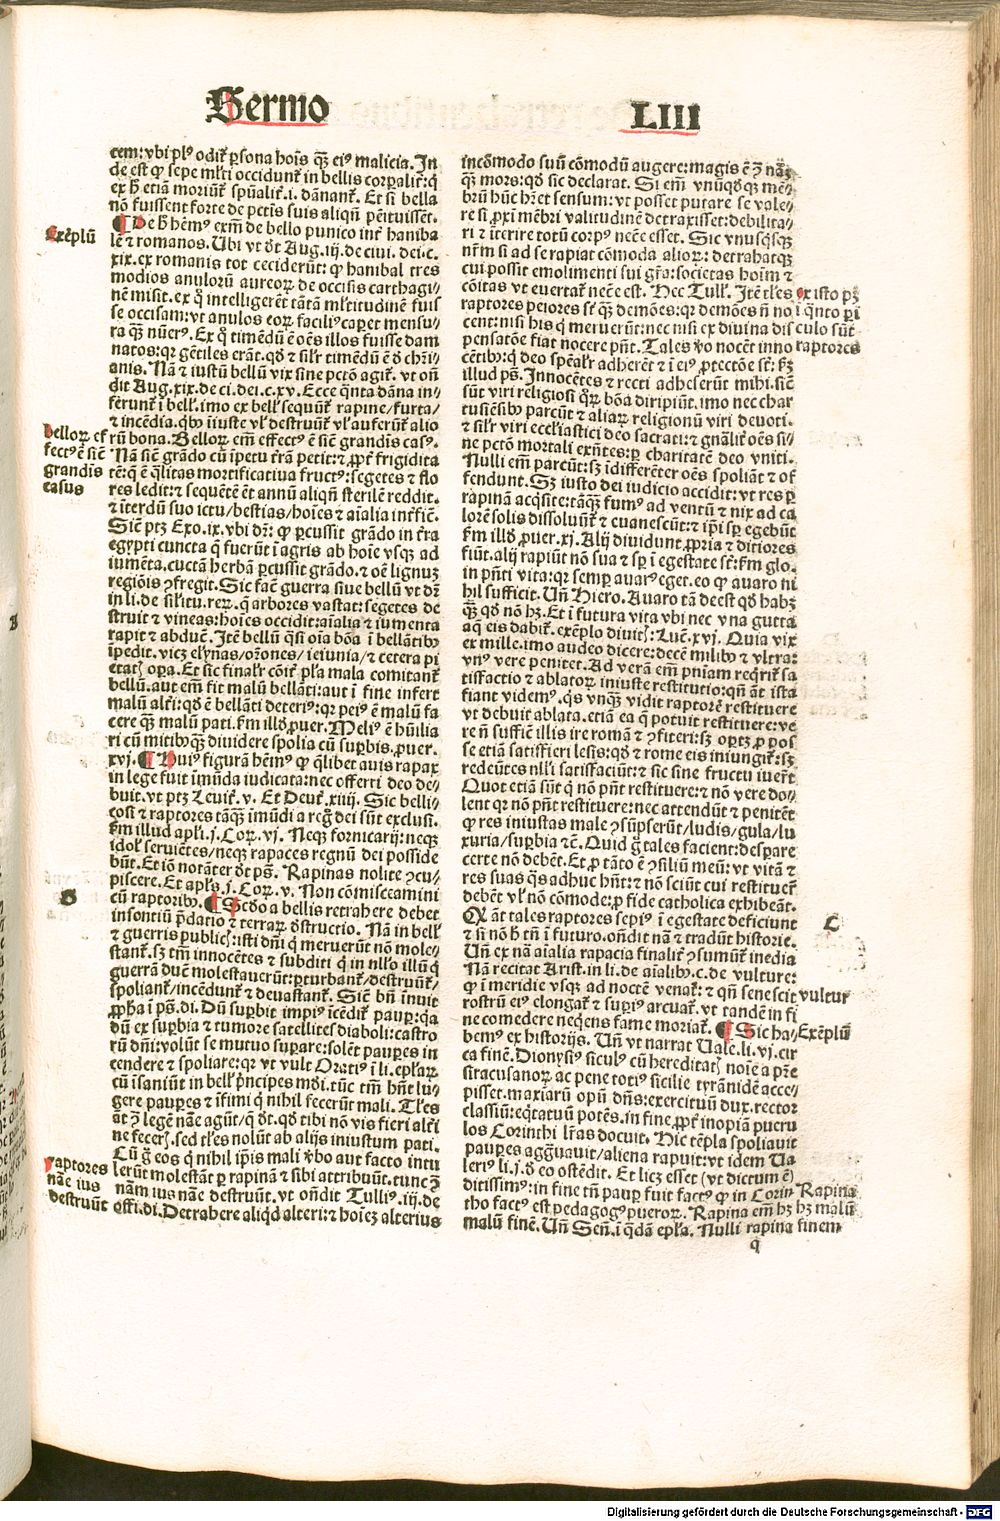 Sermo LIII
cem: vbi plꝰ odit᷑ ꝑsona hoīs q̄ꝫ eiꝰ malicia. In
de est ꝙ sepe ml̓ti occidunt᷑ in bellis corꝑalit᷑: q̇
ex h̄ etiā moriunt᷑ spūalit᷑. i. dānant᷑. Et si bella
nō fuissent forte de pctīs suis aliqn̄ pēituissēt.
¶ De h̄ hēmꝰ exm̄ de bello punico int᷑ haniba
Exēplū
lē ⁊ romanos. Ubi vt dt̄ Aug. iij. de ciui. dei. c.
xix. ex romanis tot ceciderūt: ꝙ hanibal tres
modios anulorū aureoꝝ de occisis carthagi⸗
nē misit. ex q̊ intelligerēt tātā ml̓titudinē fuis
se occisam: vt anulos eoꝝ faciliꝰ caꝑet mensu⸗
ra q̄ꝫ nūerꝰ. Ex q̊ timēdū ē oēs illos fuisse dam
natos: qꝛ gētiles erāt. qd̓ ⁊ sil̓r timēdū ē d̓ chr̄i⸗
anis. Nā ⁊ iustū bellū vix sine pctō agit᷑. vt on̄
dit Aug. xix. de ci. dei. c. xv. Ecce q̇nta dāna in⸗
ferunt᷑ ī bell̓. imo ex bell̓ sequunt᷑ rapine/furta/
⁊ incēdia. q̇bꝰ iiuste vl̓ destruūt vl̓ auferūt alio
rū bona. Belloꝝ em̄ effectꝰ ē sic̄ grandis casꝰ.
belloꝝ ef
fectꝰ ē sic̄
grandis
casus
Nā sic̄ grādo cū īpetu t᷑rā petit: ⁊ ꝓpt᷑ frigidita
tē: q̄ ē q̄litas mortificatiua fructꝰ: segetes ⁊ flo
res ledit: ⁊ sequētē ēt annū aliqn̄ sterilē reddit.
⁊ īterdū suo ictu/bestias/hoīes ⁊ aīalia int᷑fic̄.
Sic̄ ptꝫ Exo. ix. vbi dr̄: ꝙ ꝑcussit grādo in t᷑ra
egypti cuncta q̄ fuerūt ī agris ab hoīe vsqꝫ ad
iumēta. cūctā herbā ꝑcussit grādo. ⁊ oē lignuꝫ
regiōis ↄfregit. Sic facit guerra siue bellū vt dr̄
in li. de sil̓itu. reꝝ. q̄ arbores vastat: segetes de
struit ⁊ vineas: hoīes occidit: aīalia ⁊ iumenta
rapit ⁊ abduc̄. Itē bellū q̄si oīa bōa ī bellātibꝰ
īpedit. vicꝫ elynas/ořones/ieiunia/⁊ cetera pi
etatꝭ oꝑa. Et sic finalr̄ cōit᷑ pl̓a mala comitant᷑
bellū. aut em̄ fit malū bellāti: aut ī fine infert
malū alt᷑i: qd̓ ē bellāti deteriꝰ: qꝛ peiꝰ ē malū fa
cere q̄ꝫ malū pati. ẜm illd̓ ꝓuer. Meliꝰ ē hūilia
ri cū mitibꝰ q̄ꝫ diuidere spolia cū suꝑbis. ꝓuer.
xvj. ¶ Huiꝰ figurā hēmꝰ ꝙ q̄libet auis rapax
in lege fuit īmūda iudicata: nec offerri deo de⸗
buit. vt ptꝫ Leuit᷑. v. Et Deut᷑. xiiij. Sic belli⸗
cosi ⁊ raptores tāq̄ꝫ īmūdi a regͦ dei sūt exclusi.
ẜm illud apl̓i. j. Coꝝ. vj. Neqꝫ fornicarij: neqꝫ
idol̓ seruiētes/neqꝫ rapaces regnū dei posside
būt. Et iō notāter dt̄ ps̄. Rapinas nolite ↄcu⸗
piscere. Et apl̓s. j. Coꝝ. v. Non cōmisceamini
B
cū raptoribꝰ. ¶ Scd̓o a bellis retrahere debet
insontiū p̄datio ⁊ terraꝝ d̓structio. Nā in bell̓
⁊ guerris publicꝭ: isti dn̄i q̇ meruerūt nō mole⸗
stant᷑. sꝫ tm̄ innocētes ⁊ subditi q̇ in nll̓o illū q̇
guerrā duc̄ molestauerūt: ꝑturbant᷑/destruūt᷑/
spoliant᷑/incēdunt᷑ ⁊ deuastant᷑. Sic̄ bn̄ īnuit
ꝓpha ī ps̄. di. Dū suꝑbit impiꝰ īcēdit᷑ pauꝑ: qa
dū ex suꝑbia ⁊ tumore satellites diaboli: castro
rū dn̄i: volūt se mutuo suꝑare: solēt pauꝑes in
cendere ⁊ spoliare: qꝛ vt vult Oratiꝰ ī li. epl̓aꝝ
cū īsaniūt in bell̓ pͥncipes mōi. tūc tm̄ hn̄t lu⸗
gere pauꝑes ⁊ īfimi q̇ nihil fecerūt mali. Tl̓es
āt ↄ̄ legē nāe agūt/q̄ dt̄. qd̓ tibi nō vis fieri alt᷑i
ne fecerꝭ. sed tl̓es nolūt ab alijs iniustum pati.
Cū g̊ eos q̇ nihil īpīs mali v̓bo aut facto intu
lerūt molestāt ꝑ rapinā ⁊ sibi attribuūt. tunc ↄ̄
raptores
nāe ius
destruūt
nām ius nāe destruūt. vt on̄dit Tulliꝰ. iij. de
offi. di. Detrahere aliqd̓ alteri: ⁊ hoīeꝫ alterius
incōmodo suū cōmodū augere: magis ē ↄ̄ nāꝫ
q̄ꝫ mors: qd̓ sic declarat. Si em̄ vnūqd̓qꝫ mē⸗
brū hūc hr̄et sensum: vt posset putare se vale⸗
re si ꝓxi mēbri valitudinē detraxisset: debilita⸗
ri ⁊ iterire totū corpꝰ necē esset. Sic vnusq̇sqꝫ
nr̄m si ad se rapiat cōmoda alioꝝ: detrahatqꝫ
cui possit emolimenti sui gr̄a: societas hoīm ⁊
cōitas vt euertat᷑ necē est. Hec Tull̓. Itē tl̓es
ex isto pꝫ
ī q̇nto ꝑi
culo sūt
raptores
raptores peiores sr̄ q̄ꝫ demōes: qꝛ demōes n̄ no
cent: nisi his q̇ meruerūt: nec nisi ex diuina dis
pensatōe fiat nocere pn̄t. Tales v̓o nocēt inno
cētibꝰ: q̇ deo speal̓r adherēt ⁊ ī eiꝰ ꝓtectōe st̄: ẜꝫ
illud ps̄. Innocētes ⁊ recti adheserūt mihi. sic̄
sūt viri religiosi q̊ꝝ bōa diripiūt. imo nec char
tusiēsibꝰ parcūt ⁊ aliaꝝ religionū viri deuoti.
⁊ sil̓r viri eccl̓iastici deo sacrati: ⁊ gn̄alit᷑ oēs si⸗
ne pctō mortali exn̄tes: ꝑ charitatē deo vniti.
Nulli em̄ parcūt: sꝫ īdifferēter oēs spoliāt ⁊ of
fendunt. Sꝫ iusto dei iudicio accidit: vt res ꝑ
rapinā acq̇site: tāq̄ꝫ fumꝰ ad ventū ⁊ nix ad ca
lorē solis dissoluūt᷑ ⁊ euanescūt: ⁊ ip̄i sꝑ egebūt
ẜm illd̓ ꝓuer. xj. Alij diuidunt ꝓpria ⁊ ditiores
fiūt. alij rapiūt nō sua ⁊ sꝑ ī egestate st̄: ẜm glo.
in pn̄ti vita: qꝛ semꝑ auarꝰ eget. eo ꝙ auaro ni
hil sufficit. Un̄ Hiero. Auaro tā deest qd̓ habꝫ
q̄ꝫ qd̓ nō hꝫ. Et ī futura vita vbi nec vna gutta
aq̄ eis dabit᷑. exēplo diuitꝭ: Luc̄. xvj. Quia vix
ex mille. imo audeo dicere: decē milibꝰ ⁊ vltra:
vnꝰ vere penitet. Ad verā em̄ pn̄iam req̇rit᷑ sa
tisfactio ⁊ ablatoꝝ iniuste restitutio: qn̄ āt ista
fiant videmꝰ. q̇s vnq̄ꝫ vidit raptorē restituere
vt debuit ablata. etiā ea q̄ potuit restituere: ve
re n̄ suffic̄ illis ire romā ⁊ ↄfiteri: sꝫ oꝑtꝫ ꝓ pos
se etiā satisfieri lesis: qd̓ ⁊ rome eis iniungit᷑: sꝫ
redeūtes nll̓i satisfaciūt: ⁊ sic sine fructu iuer̄t
Quot etiā sūt q̇ nō pn̄t restituere: ⁊ nō vere do⸗
lent qꝛ nō pn̄t restituere: nec attendūt ⁊ penitēt
ꝙ res iniustas male ↄsūpserūt/ludis/gula/lu
xuria/suꝑbia ⁊c̄. Quid g̊ tales facient: desꝑare
certe nō debēt. Et ꝓ tāto ē ↄsiliū meū: vt vitā ⁊
res suas q̄s adhuc hn̄t: ⁊ nō sciūt cui restituer̄
debēt vl̓ nō cōmode: ꝓ fide catholica exhibeāt.
Qꝛ āt tales raptores sepiꝰ ī egestate deficiunt
C
⁊ si nō h̄ tn̄ ī futuro. on̄dit nā ⁊ tradūt historie.
Un̄ ex nā aīalia rapacia finalit᷑ ↄsumūt᷑ inedia
Nā recitat Arist. in li. de aīalibꝰ. c. de vulture:
ꝙ ī meridie vsqꝫ ad noctē venat᷑: ⁊ qn̄ senescit
vultur
rostrū eiꝰ elongat᷑ ⁊ suꝑiꝰ arcuat᷑. vt tandē in fi
ne comedere neq̇ens fame moriat᷑. ¶ Sic ha⸗
Exēplū
bemꝰ ex historijs. Un̄ vt narrat Uale. li. vj. cir
ca finē. Dionysiꝰ siculꝰ cū hereditatꝭ noīe a pr̄e
siracusanoꝝ ac pene totiꝰ sicilie tyrānidē acce⸗
pisset. maxiarū opū dn̄s: exercituū dux. rector
classiū: eq̇tatuū potēs. in fine ꝓpt᷑ inopiā pueru
los Corinthi lr̄as docuit. Hic tēpla spoliauit
pauꝑes aggrauauit/aliena rapuit: vt idem Ua
leriꝰ li. j. d̓ eo ostēdit. Et licꝫ esset (vt dictum ē)
ditissimꝰ: in fine tn̄ pauꝑ fuit factꝰ ꝙ in Corin
Rapina
tho factꝰ est pedagogꝰ pueroꝝ. Rapina em̄ hꝫ hꝫ malū
malū finē. Un̄ Sen̄. ī q̇dā epl̓a. Nulli rapina finem
q
Digitalisierung gefördert durch die Deutsche Forschungsgemeinschaft - DFG